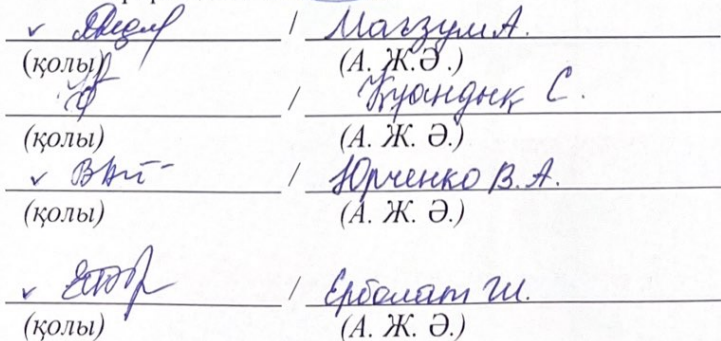 / Мағзум А.
(қолы) (А. Ж.Ә .)
/ Қуандық С.
(қолы) (А. Ж. Ә.)
/ Юрченко В. А.
(қолы) (А. Ж. Ә.)
/ Ерболат Ш.
(қолы) (А. Ж. Ә.)